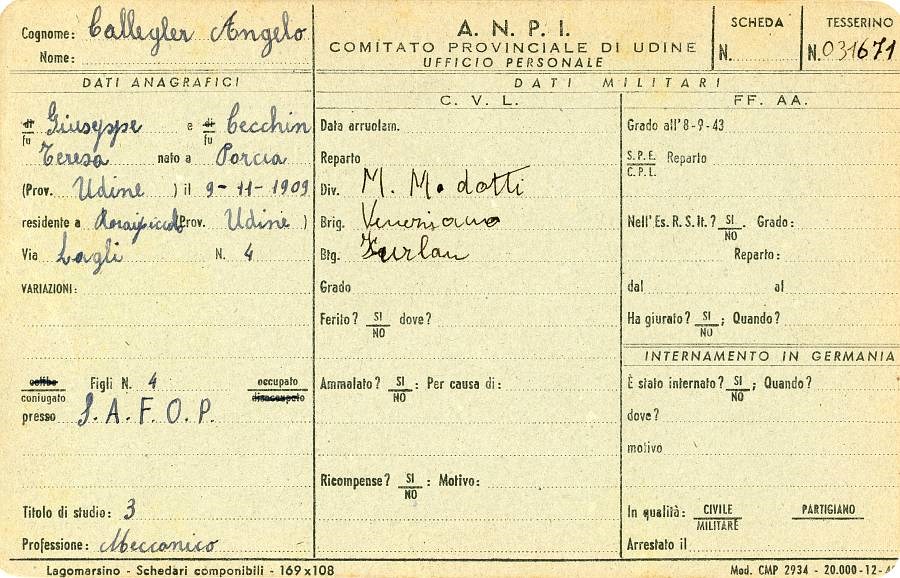 Cognome: Callegler Angelo
Nome:
A. N. P. I.
COMITATO PROVINCIALE DI UDINE
UFFICIO PERSONALE
SCHEDA
N.
TESSERINO
N. 031671
DATI ANAGRAFICI
di
fu Giuseppe e di
fu Cecchin
Teresa nato a Porcia
(Prov. Udine ) il 9-11-1909
residente a Roraipiccolo (Prov. Udine )
Via Lagli N. 4
VARIAZIONI:
celibe
coniugato Figli N. 4 occupato
disoccupato
presso S.A.F.O.P.
Titolo di studio: 3
Professione: Meccanico
DATI MILITARI
C. V. L.
Data arruolam.
Reparto
Div. M. Modotti
Brig. Veneziano
Btg. Furlan
Grado
Ferito? SI
NO dove?
Ammalato? SI
NO : Per causa di:
Ricompense? SI
NO : Motivo:
FF. AA.
Grado all'8-9-43
S.P.E.
C.P.L. Reparto
Nell'Es. R. S. It.? SI
NO Grado:
Reparto:
dal al
Ha giurato? SI
NO ; Quando?
INTERNAMENTO IN GERMANIA
È stato internato? SI
NO ; Quando?
dove?
motivo
In qualità: CIVILE
MILITARE PARTIGIANO
Arrestato il
Lagomarsino - Schedari componibili - 169x108
Mod. CMP 2934 - 20.000-12-4